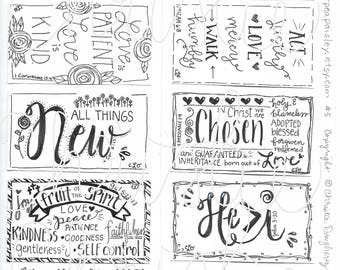 Love is
PATIENT
Love is
KIND
1 Corinthians 13:4
ACT
justly
LOVE
mercy
WALK
humbly
MICAH 6:8
ALL THINGS
New
In Christ we are
Chosen
holy & blameless
ADOPTED
blessed
forgiven
redeemed
and GUARANTEED an
INHERITANCE born out of
Love
EPHESIANS 1
Fruit of the Spirit
LOVE joy
peace
PATIENCE
KINDNESS
GOODNESS
faithfulness
gentleness
SELF control
He > i
John 3:30
peapaisley.etsy.com #5 Copyright ©